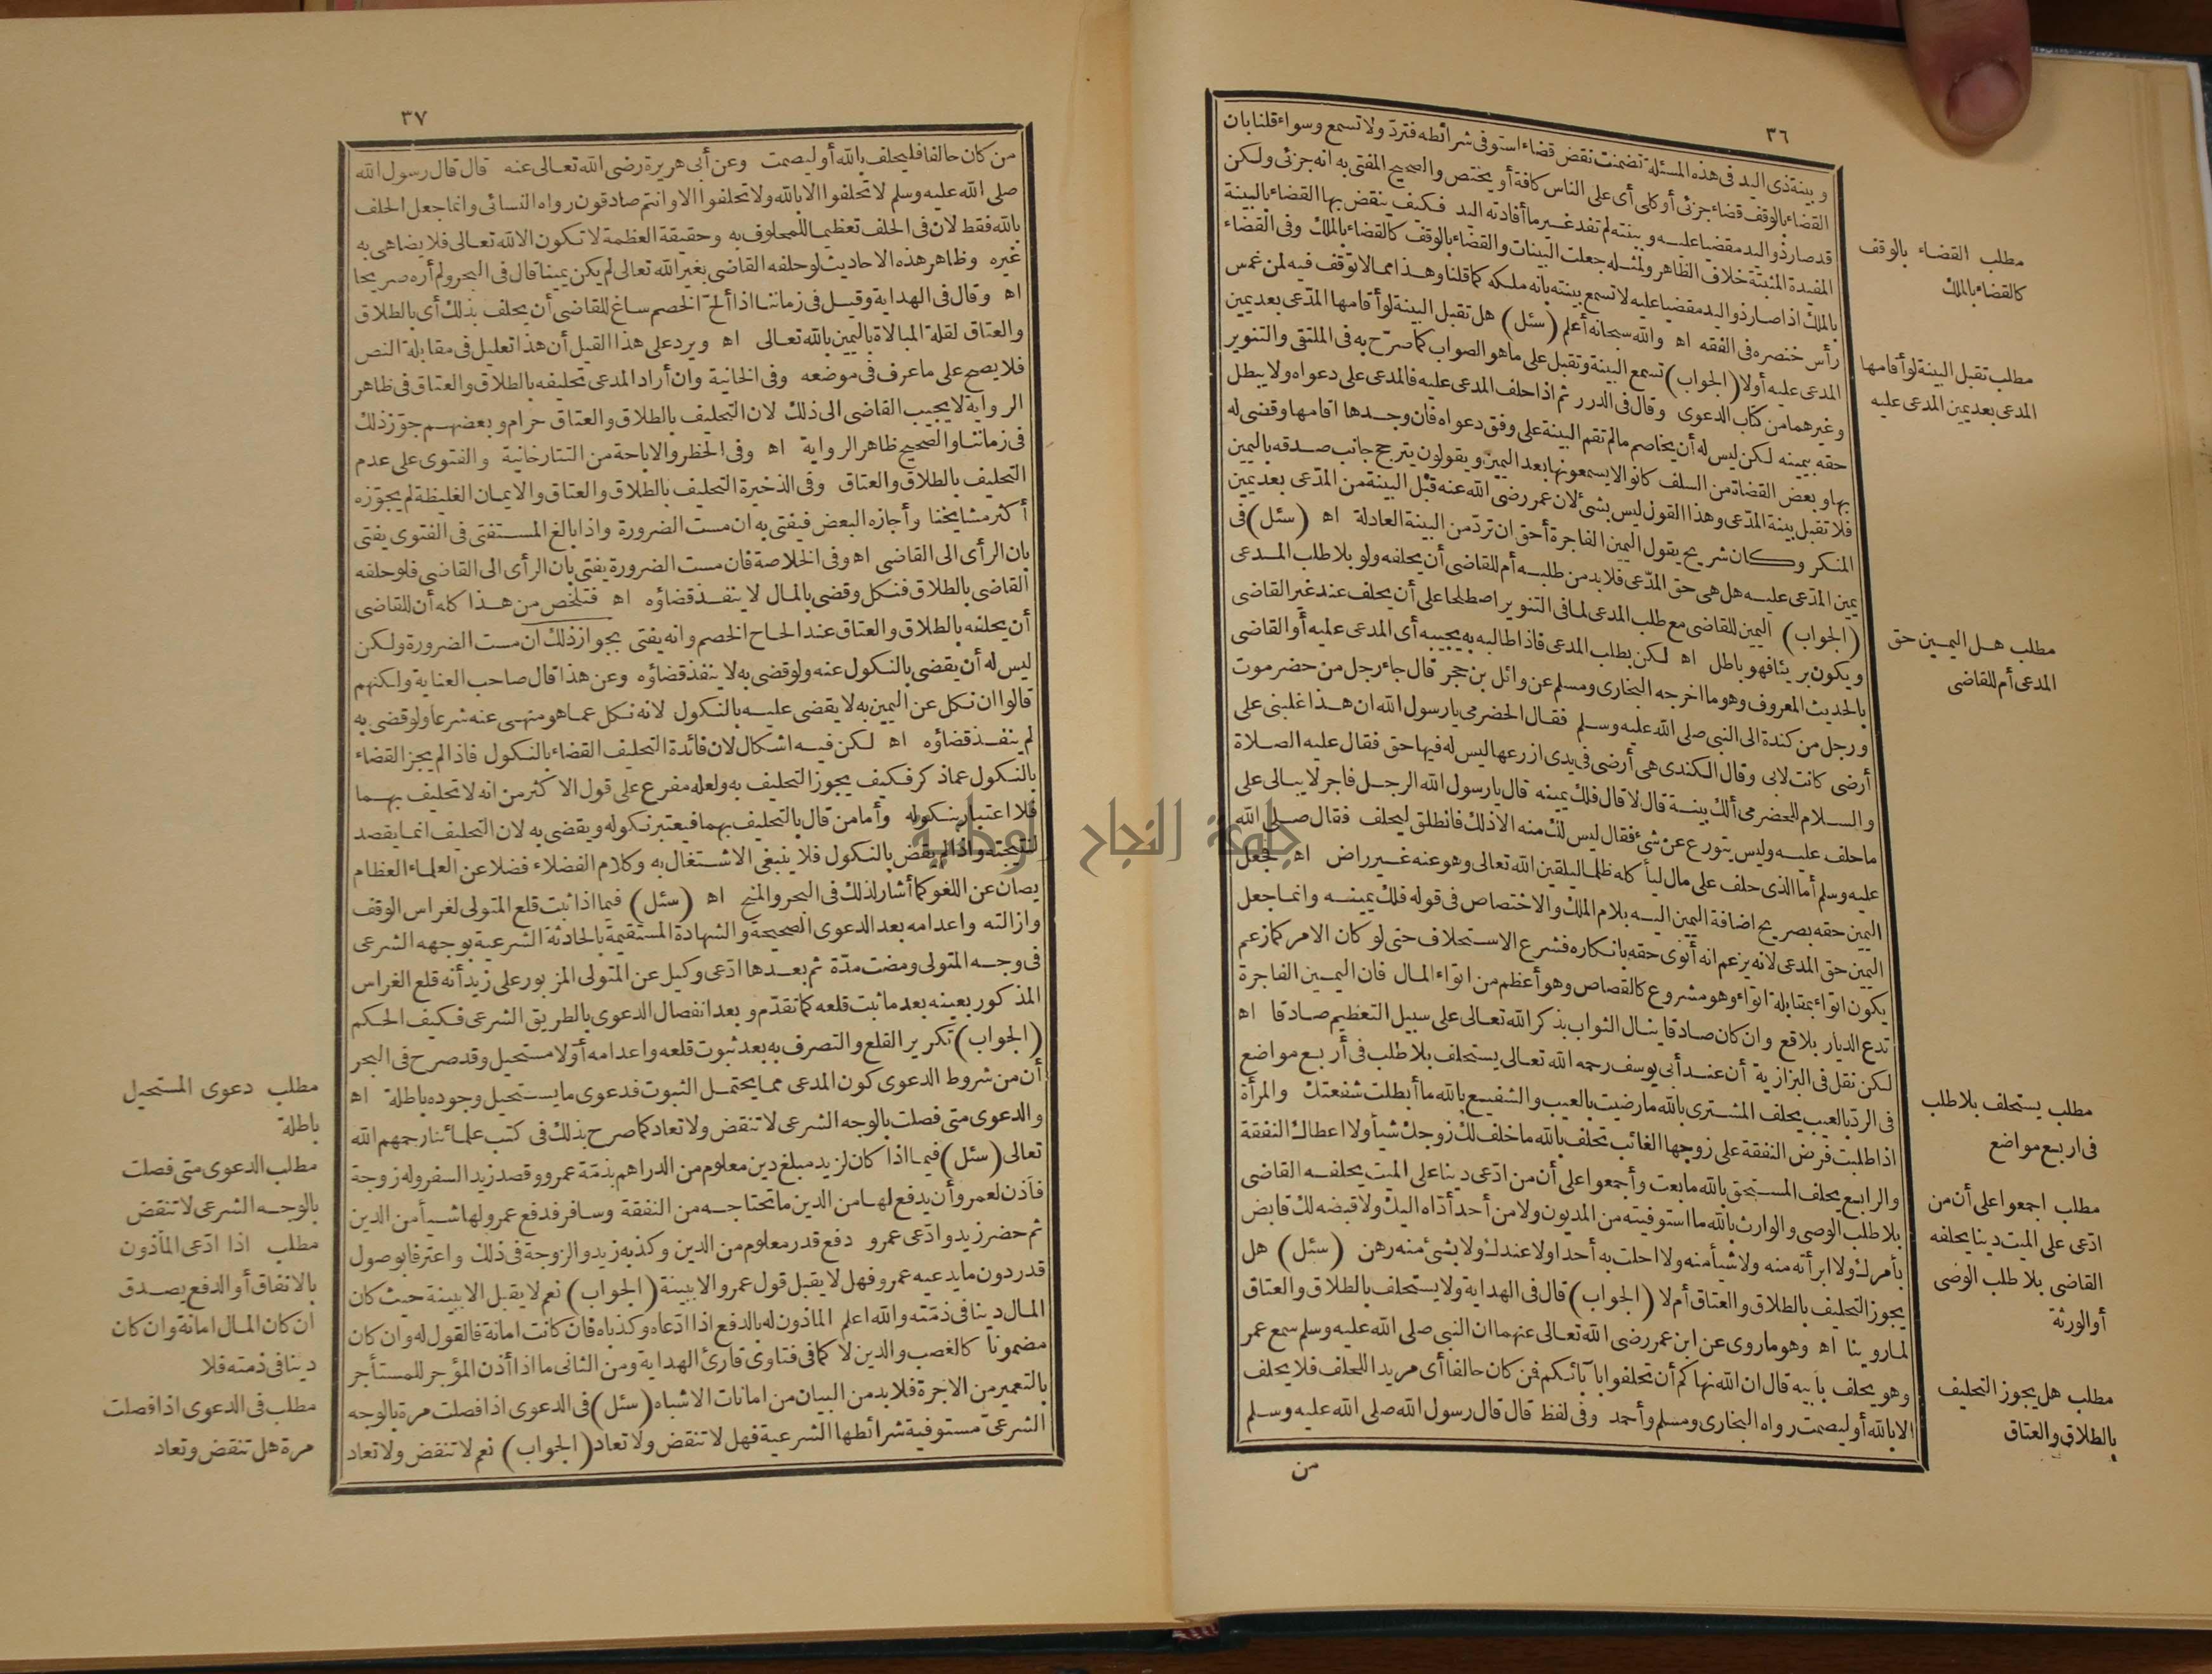 ٣٦
وبينة ذى اليد فى هذه المسئلة تضمنت نقض قضاء استوفى شرائطه فترد ولا تسمع وسواء قلنا بان
القضاء بالوقف قضاء جزئى أو كلى أى على الناس كافة أو يختص والصحيح المفتى به انه جزئى ولكن
قد صار ذو اليد مقضيا عليه وبينته لم تفد غير ما أفادته اليد فكيف ينقض بها القضاء بالبينة
المفيدة المثبتة خلاف الظاهر ولمثله جعلت البينات والقضاء بالوقف كالقضاء بالملك وفى القضاء
بالملك اذا صار ذو اليد مقضيا عليه لا تسمع بينته بأنه ملكه كما قلنا وهذا مما لا توقف فيه لمن غمس
رأس خنصره فى الفقه اه والله سبحانه أعلم (سئل) هل تقبل البينة لو أقامها المدّعى بعد يمين
المدعى عليه أولا (الجواب) تسمع البينة وتقبل على ما هو الصواب كما صرّح به فى الملتقى والتنوير
وغيرهما من كتاب الدعوى وقال فى الدرر ثم اذا حلف المدعى عليه فالمدعى على دعواه ولا يبطل
حقه بيمينه لكن ليس له أن يخاصم ما لم تقم البينة على وفق دعواه فان وجدها اقامها وقضى له
بها وبعض القضاة من السلف كانوا لا يسمعونها بعد اليمين ويقولون يترجح جانب صدقه باليمين
فلا تقبل بينة المدّعى وهذا القول ليس بشئ لان عمر رضى الله عنه قبل البينة من المدّعى بعد يمين
المنكر وكان شريح يقول اليمين الفاجرة أحق ان تردّ من البينة العادلة اه (سئل) فى
يمين المدّعى عليه هل هى حق المدّعى فلا بد من طلبه أم للقاضى أن يحلفه ولو بلا طلب المدعى
(الجواب) اليمين للقاضى مع طلب المدعى لما فى التنوير اصطلحا على أن يحلف عند غير القاضى
ويكون بريئا فهو باطل اه لكن بطلب المدعى فاذا طالبه به يجيبه أى المدعى عليه أو القاضى
بالحديث المعروف وهو ما اخرجه البخارى ومسلم عن وائل بن حجر قال جاء رجل من حضرموت
ورجل من كندة الى النبى صلى الله عليه وسلم فقال الحضرمى يا رسول الله ان هذا غلبنى على
أرضى كانت لابى وقال الكندى هى أرضى فى يدى ازرعها ليس له فيها حق فقال عليه الصلاة
والسلام للحضرمى ألك بينة قال لا قال فلك يمينه قال يا رسول الله الرجل فاجر لا يبالى على
ما حلف عليه وليس يتورع عن شئ فقال ليس لك منه الا ذلك فانطلق ليحلف فقال صلى الله
عليه وسلم أما الذى حلف على مال ليأكله ظلما ليلقين الله تعالى وهو عنه غير راض اه فجعل
اليمين حقه بصريح اضافة اليمين اليه بلام الملك والاختصاص فى قوله فلك يمينه وانما جعل
اليمين حق المدعى لانه يزعم انه أتوى حقه بانكاره فشرع الاستحلاف حتى لو كان الامر كما زعم
يكون اتواء بمقابلة اتواء وهو مشروع كالقصاص وهو أعظم من اتواء المال فان اليمين الفاجرة
تدع الديار بلاقع وان كان صادقا ينال الثواب بذكر الله تعالى على سبيل التعظيم صادقا اه
لكن نقل فى البزازية أن عند أبى يوسف رحمه الله تعالى يستحلف بلا طلب فى أربع مواضع
فى الردّ بالعيب يحلف المشترى بالله ما رضيت بالعيب والشفيع بالله ما أبطلت شفعتك والمرأة
اذا طلبت فرض النفقة على زوجها الغائب تحلف بالله ما خلف لك زوجك شيأ ولا اعطاك النفقة
والرابع يحلف المستحق بالله ما بعت وأجمعوا على أن من ادّعى دينا على الميت يحلفه القاضى
بلا طلب الوصى والوارث بالله ما استوفيته من المديون ولا من أحد أدّاه اليك ولا قبضه لك قابض
بأمرك ولا ابرأته منه ولا شيأ منه ولا احلت به أحدا ولا عندك ولا بشئ منه رهن (سئل) هل
يجوز التحليف بالطلاق والعتاق أم لا (الجواب) قال فى الهداية ولا يستحلف بالطلاق والعتاق
لما روينا اه وهو ما روى عن ابن عمر رضى الله تعالى عنهما ان النبى صلى الله عليه وسلم سمع عمر
وهو يحلف بأبيه قال ان الله نهاكم أن تحلفوا بآبائكم فمن كان حالفا أى مريدا للحلف فلا يحلف
الا بالله أو ليصمت رواه البخارى ومسلم وأحمد وفى لفظ قال قال رسول الله صلى الله عليه وسلم
من
مطلب القضاء بالوقف
كالقضاء بالملك
مطلب تقبل البينة لو أقامها
المدعى بعد يمين المدعى عليه
مطلب هل اليمين حق
المدعى أم للقاضى
مطلب يستحلف بلا طلب
فى اربع مواضع
مطلب اجمعوا على أن من
ادّعى على الميت دينا يحلفه
القاضى بلا طلب الوصى
أو الورثة
مطلب هل يجوز التحليف
بالطلاق والعتاق
٣٧
من كان حالفا فليحلف بالله أو ليصمت وعن أبى هريرة رضى الله تعالى عنه قال قال رسول الله
صلى الله عليه وسلم لا تحلفوا الا بالله ولا تحلفوا الا وانتم صادقون رواه النسائى وانما جعل الحلف
بالله فقط لان فى الحلف تعظيما للمحلوف به وحقيقة العظمة لا تكون الا لله تعالى فلا يضاهى به
غيره وظاهر هذه الاحاديث لو حلفه القاضى بغير الله تعالى لم يكن يمينا قال فى البحر ولم أره صريحا
اه وقال فى الهداية وقيل فى زماننا اذا ألحّ الخصم ساغ للقاضى أن يحلف بذلك أى بالطلاق
والعتاق لقلة المبالاة باليمين بالله تعالى اه ويرد على هذا القيل أن هذا تعليل فى مقابلة النص
فلا يصح على ما عرف فى موضعه وفى الخانية وان أراد المدعى تحليفه بالطلاق والعتاق فى ظاهر
الرواية لا يجيب القاضى الى ذلك لان التحليف بالطلاق والعتاق حرام وبعضهم جوّز ذلك
فى زماننا والصحيح ظاهر الرواية اه وفى الحظر والاباحة من التتارخانية والفتوى على عدم
التحليف بالطلاق والعتاق وفى الذخيرة التحليف بالطلاق والعتاق والايمان الغليظة لم يجوّزه
أكثر مشايخنا وأجازه البعض فيفتى به ان مست الضرورة واذا بالغ المستفتى فى الفتوى يفتى
بان الرأى الى القاضى اه وفى الخلاصة فان مست الضرورة يفتى بان الرأى الى القاضى فلو حلفه
القاضى بالطلاق فنكل وقضى بالمال لا ينفذ قضاؤه اه فتلخص من هذا كله أن للقاضى
أن يحلفه بالطلاق والعتاق عند الحاح الخصم وانه يفتى بجواز ذلك ان مست الضرورة ولكن
ليس له أن يقضى بالنكول عنه ولو قضى به لا ينفذ قضاؤه وعن هذا قال صاحب العناية ولكنهم
قالوا ان نكل عن اليمين به لا يقضى عليه بالنكول لانه نكل عما هو منهى عنه شرعا ولو قضى به
لم ينفذ قضاؤه اه لكن فيه اشكال لان فائدة التحليف القضاء بالنكول فاذا لم يجز القضاء
بالنكول عما ذكر فكيف يجوز التحليف به ولعله مفرع على قول الاكثر من انه لا تحليف بهما
فلا اعتبار بنكوله وأما من قال بالتحليف بهما فيعتبر نكوله ويقضى به لان التحليف انما يقصد
لنتيجته واذا لم يقض بالنكول فلا ينبغى الاشتغال به وكلام الفضلاء فضلا عن العلماء العظام
يصان عن اللغو كما أشار لذلك فى البحر والمنح اه (سئل) فيما اذا ثبت قلع المتولى لغراس الوقف
وازالته واعدامه بعد الدعوى الصحيحة والشهادة المستقيمة بالحادثة الشرعية بوجهه الشرعى
فى وجه المتولى ومضت مدّة ثم بعدها ادّعى وكيل عن المتولى المزبور على زيد أنه قلع الغراس
المذكور بعينه بعد ما ثبت قلعه كما تقدّم وبعد انفصال الدعوى بالطريق الشرعى فكيف الحكم
(الجواب) تكرير القلع والتصرف به بعد ثبوت قلعه واعدامه أولا مستحيل وقد صرح فى البحر
أن من شروط الدعوى كون المدعى مما يحتمل الثبوت فدعوى ما يستحيل وجوده باطلة اه
والدعوى متى فصلت بالوجه الشرعى لا تنقض ولا تعاد كما صرح بذلك فى كتب علمائنا رحمهم الله
تعالى (سئل) فيما اذا كان لزيد مبلغ دين معلوم من الدراهم بذمّة عمرو وقصد زيد السفر وله زوجة
فأذن لعمرو أن يدفع لها من الدين ما تحتاجه من النفقة وسافر فدفع عمرو لها شيأ من الدين
ثم حضر زيد وادّعى عمرو دفع قدر معلوم من الدين وكذبه زيد والزوجة فى ذلك واعترفا بوصول
قدر دون ما يدعيه عمرو فهل لا يقبل قول عمرو الا ببينة (الجواب) نعم لا يقبل الا ببينة حيث كان
المال دينا فى ذمّته والله اعلم الماذون له بالدفع اذا ادّعاه وكذباه فان كانت امانة فالقول له وان كان
مضمونا كالغصب والدين لا كما فى فتاوى قارئ الهداية ومن الثانى ما اذا أذن المؤجر للمستأجر
بالتعمير من الاجرة فلا بد من البيان من امانات الاشباه (سئل) فى الدعوى اذا فصلت مرة بالوجه
الشرعى مستوفية شرائطها الشرعية فهل لا تنقض ولا تعاد (الجواب) نعم لا تنقض ولا تعاد
مطلب دعوى المستحيل
باطلة
مطلب الدعوى متى فصلت
بالوجه الشرعى لا تنقض
مطلب اذا ادّعى المأذون
بالانفاق أو الدفع يصدق
ان كان المال امانة وان كان
دينا فى ذمته فلا
مطلب فى الدعوى اذا فصلت
مرة هل تنقض وتعاد
جامعة النجاح الوطنية